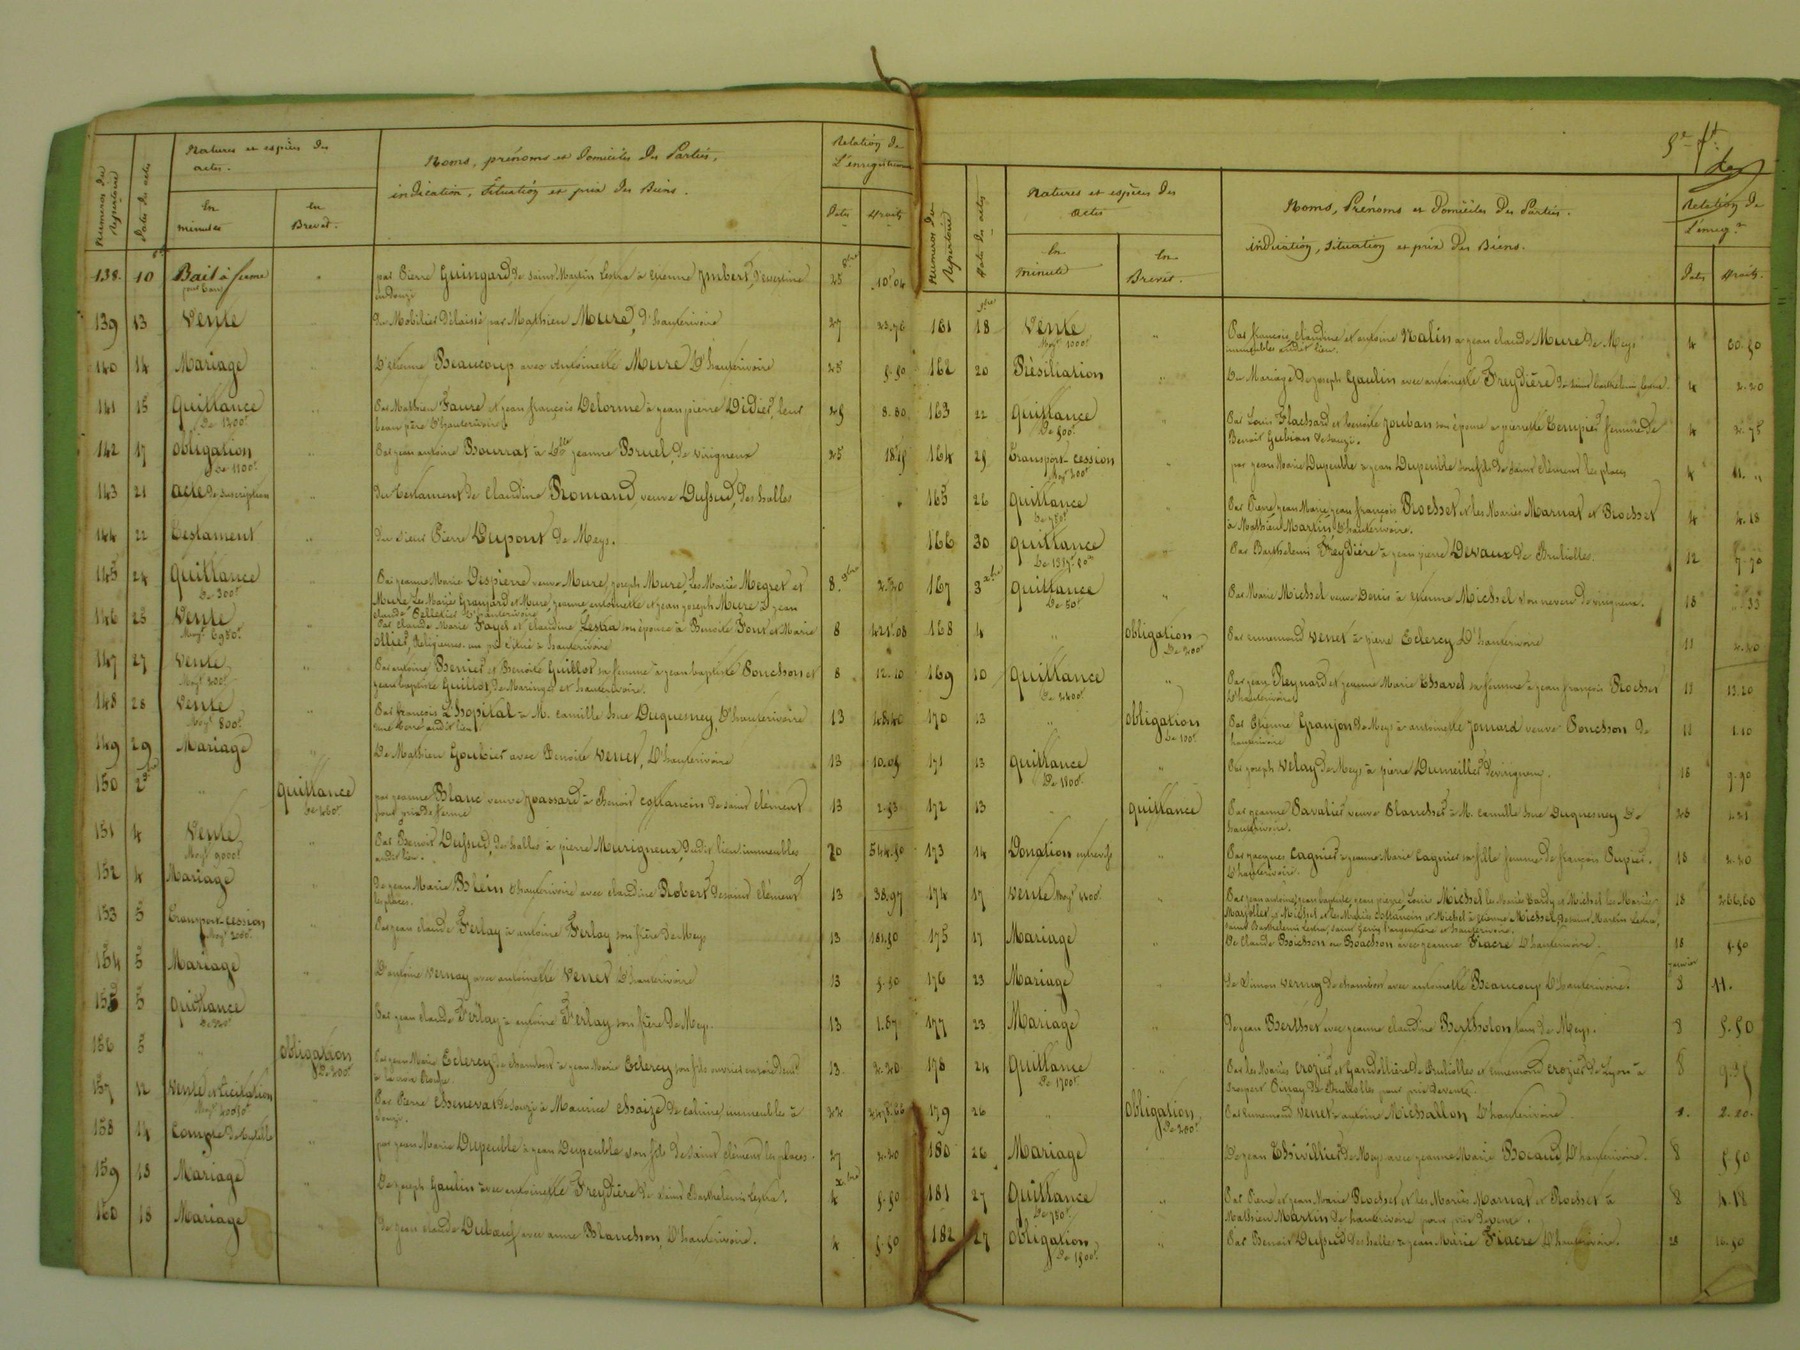 Numéros du Répertoire
Dates des actes
Natures et espèces des actes.
en minutes
en Brevet.
Noms, prénoms et Domiciles des Parties,
indication, Situation et prix des Biens.
Relation de L'enregistrement
Dates
Droits
138. 10 Bail à ferme " par Pierre Guingard, de Saint Martin Lestra à Etienne Imbert, 25 10.04
139 13 Vente du Mobilier délaissé par Mathieu Mure, d'hauterivoire 27 23.76
140 14 Mariage D'etienne Beaucoup avec Antoinette Mure d'hauterivoire 25 5.50
141 15 quittance Par Mathieu Faure et jean françois Delorme à jean pierre Didier leur 8.80
De 1300f beau père d'hauterivoire
142 17 obligation Par jean antoine Bourrat à Dlle jeanne Bruel, de virigneux 25
De 1100f
143 21 acte de suscription du testament de Claudine Romand, veuve Dussud, des halles "
144 22 Testament " du sieur Pierre Dupont de Meys.
145 24 quittance " Par jeanne Marie Despierre veuve Mure, joseph Mure, Les Mariés Megret et 8. 9bre 2.20
De 300f Mure, Les Mariés Granjard et Mure, jeanne, antoinette et jean joseph Mure à jean
claude Pelletier d'hauterivoire
146 25 Vente " Par Claude Marie Fayet et Claudine Lestra son épouse à Benoite Font et Marie 8 421.08
Moyt 6980f ollier, Religieuses un pré situé à hauterivoire
147 27 Vente " Par antoine Berrier et Benoite Guillot sa femme à jean baptiste Ponchon et 8 12.10
Moyt 200f jean baptiste Guillot, de Maringes et hauterivoire.
148 28 Vente " Par françois L'hopital à M. camille Duquesney, d'hauterivoire 13 48.40
Moyt 800f une terre audit lieu
149 29 Mariage " De Mathieu Goubier avec Benoite Venet, d'hauterivoire 13 10.05
150 2 " quittance par jeanne Blanc veuve Joassard à Benoit collancin de saint clément 13 2.53
De 460f pour prix de ferme
151 4 Vente " Par Benoit Dussud, des halles à pierre Murigneux, dudit lieu immeubles 20 544.50
Moyt 9000f audit lieu.
152 4 Mariage " de jean Marie Blein d'hauterivoire avec claudine Robert de saint clément 13 38.97
les places.
153 5 Transport-cession Par jean claude Ferlay à antoine Ferlay son frère de Meys 13 181.50
Moyt 3000f
154 5 Mariage " D'antoine Vernay avec antoinette Venet d'hauterivoire 13 5.50
155 5 quittance Par jean claude Ferlay à antoine Ferlay son frère de Meys. 13 1.87
156 5 " obligation Par jean Marie Eclercy de chambost à jean Marie Eclercy son fils ouvrier en soie 13. 2.20
De 200f à la croix Rousse
157 12 Vente et licitation " Par Pierre Chenevat de souzi à Maurice Chaize de caluire immeubles à 22
souzi.
158 14 Compte de tutelle " par jean Marie Dupeuble à jean Dupeuble son fils de saint clément les places. 27 2.20
159 18 Mariage " De joseph Gaulin avec antoinette Freydière de saint Barthelemi lestra. xbre 4 5.50
160 18 Mariage " de jean claude Duboeuf avec anne Blanchon, d'hauterivoire. 4 5.50
5e ft
Numéros du Répertoire
Date des actes
Natures et espèces des actes
en minute
en Brevet.
Noms, Prénoms et Domiciles des Parties.
indication, situation et prix des Biens.
Relation de L'enreg.t
Dates
Droits.
161 18 Vente " Par françois, claudine et antoine Nalin à jean claude Mure de Meys 4 60.50
Moyt 1000f immeubles audit lieu.
162 20 Résiliation " Du Mariage de joseph Gaulin avec antoinette Freydière de saint barthelemi lestra. 4 2.20
163 22 quittance " Par Louis Flachard et benoite jouban son épouse à pierrette Terupied femme de 4 2.75
De 500f Benoit Gubian de souzi.
164 25 Transport-cession par jean Marie Dupeuble à jean Dupeuble son fils de saint clément les places 4 11. "
Moyt 200f
165 26 quittance " Par Pierre, jean Marie, jean françois Rochet et les Mariés Marnat et Rochet 4 4.18
De 750f à Mathieu Martin d'hauterivoire.
166 30 quittance " Par Barthelemi Freydière à jean pierre Devaux de Brulioles. 12 7.70
167 3 xbre quittance " Par Marie Michel veuve Denis à etienne Michel son neveu de virigneux. 18 ".33
De 50f
168 4 " obligation Par ennemond Venet à pierre Eclercy d'hauterivoire 11 2.20
De 200f
169 10 quittance " Par jean Reynard et jeanne Marie Chavel sa femme à jean françois Rochet 11 13.20
De 2400f d'hauterivoire
170 13 " obligation Par Etienne Granjon de Meys à antoinette jomard veuve Ponchon de 11 1.10
De 100f hauterivoire
171 13 quittance " Par joseph Velay de Meys à pierre Dumeiller de virigneux. 18 9.90
De 1800f
172 13 " quittance Par jeanne Savatier veuve Blanchet à M. camille Duquesney de
hauterivoire.
173 14 Donation entrevifs " Par jacques Cagnier à jeanne Marie Cagnier sa fille femme de françois Dupier. 18 2.20
d'hauterivoire.
174 17 Vente Moyt 4400f " Par jean antoine, jean baptiste, jean pierre, Louis Michel les Mariés Bardy et Michel les Mariés 18 266.60
Mayollet et Michel et les Mariés collancin et Michel à etienne Michel, de saint Martin Lestra,
saint Barthelemi Lestra, saint Genis l'argentiere et hauterivoire.
175 17 Mariage " De claude Boichon ou Boachon avec jeanne Fiacre d'hauterivoire. 18 5.50
176 23 Mariage " De Simon Vernay de chambost avec antoinette Beaucoup d'hauterivoire. janvier 8 11.
177 23 Mariage " De jean Berthet avec jeanne claudine Bertholon, tous de Meys. 8 5.50
178 24 quittance " Par les Mariés Crozier et Gandolliere de Brulioles et ennemond Crozier de Lyon à 8
De 1700f prosper Ourzay de Brulioles pour prix de vente.
179 26 " obligation Par Ennemond Venet à antoine Michallon d'hauterivoire 8. 2.20.
De 200f
180 26 Mariage De jean Thivillier de Meys avec jeanne Marie Bocaud, d'hauterivoire. 8 5.50
181 27 Quittance " Par Pierre et jean Marie Rochet et les Mariés Marnat et Rochet à 8 4.18
De 750f Mathieu Martin de hauterivoire pour prix de vente.
182 27 obligation " Par Benoit Dussud des halles à jean Marie Fiacre d'hauterivoire. 28 16.50
De 1500f